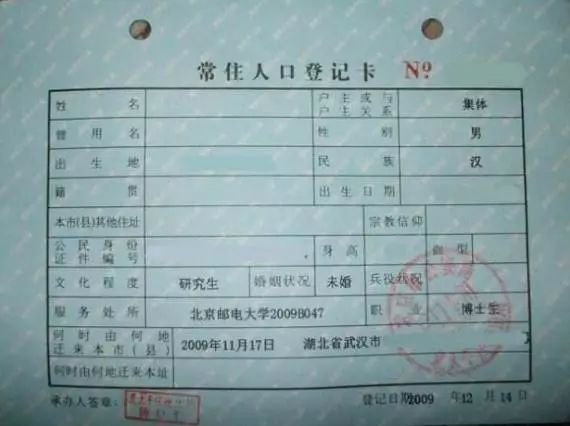 常住人口登记卡 No
姓名 户主或与户主关系 集体
曾用名 性别 男
出生地 民族 汉
籍贯 出生日期
本市(县)其他住址 宗教信仰
公民身份证件编号 身高 血型
文化程度 研究生 婚姻状况 未婚 兵役状况
服务处所 北京邮电大学2009B047 职业 博士生
何时由何地迁来本市(县) 2009年11月17日 湖北省武汉市
何时由何地迁来本址
承办人签章: 登记日期2009 年12 月14日